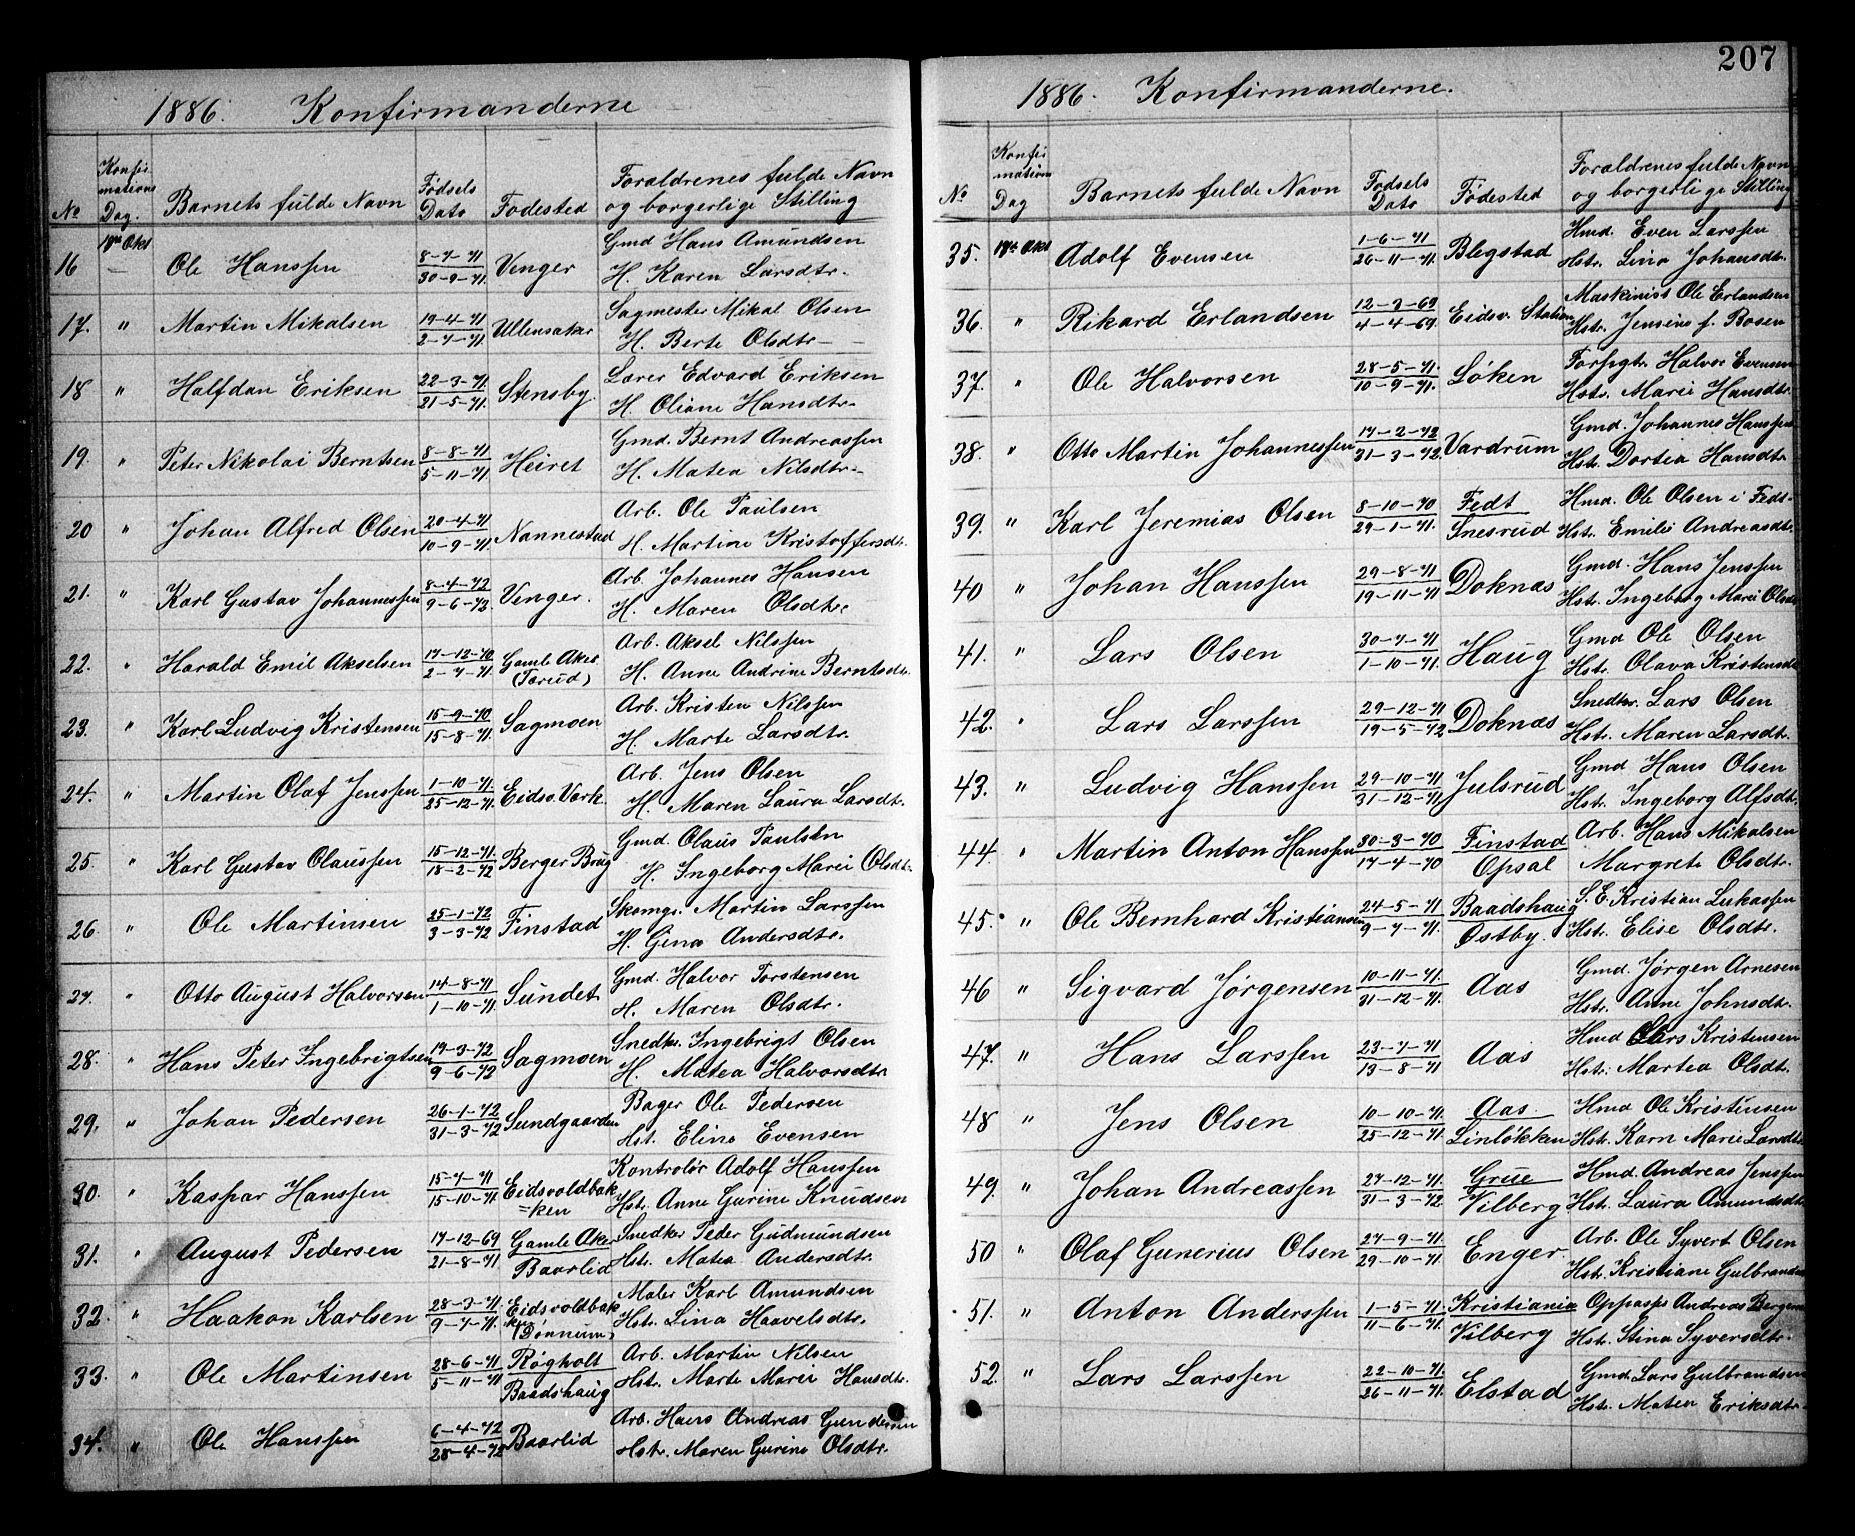 1886. Konfirmanderne
No Konfirmations Dag. Barnets fulde Navn Fødsels Dato Fødested Foraldrenes fulde Navn og borgerlige Stilling
16 10de Okt Ole Hanssen 8-7-71 30-9-71 Venger Gmd Hans Amundsen
H. Karen Larsdtr.
17. " Martin Mikalsen 19-4-71 2-7-71 Ullensaker Sagmester Mikal Olsen
H. Berte Olsdtr
18 " Halfdan Eriksen 22-3-71. 21-5-71. Stensby. Lærer Edvard Eriksen
H. Oliane Hansdtr
19. " Peter Nikolai Berntsen 8-8-71 5-11-71. Heiret Gmd. Bernt Andreassen
H. Matea Nilsdtr
20 " Johan Alfred Olsen 20-4-71 10-9-71. Nannestad Arb. Ole Paulsen
H. Martine Kristoffersdtr.
21. " Karl Gustav Johannessen 8-4-72 9-6-72 Venger. Arb. Johannes Hansen
H. Maren Olsdtr.
22. " Harald Emil Akselsen 17-12-70 2-7-71. Gamle Aker (Tærud) Arb. Aksel Nilssen
H. Anne Andrine Berntsdtr.
23. " Karl Ludvig Kristensen 15-9-70 15-8-71. Sagmoen Arb. Kristen Nilssen
H. Marte Larsdtr.
24. " Martin Olaf Jenssen 1-10-71. 25-12-71. Eidsv. Værk. Arb. Jens Olsen
H. Maren Laura Larsdtr.
25. " Karl Gustav Olaussen 15-12-71. 18-2-72 Berger Brug Gmd. Olaus Paulsen
H. Ingeborg Marie Olsdtr.
26. " Ole Martinsen 25-1-72 3-3-72 Finstad Skomgr. Martin Larssen
H. Gina Andersdtr.
27. " Otto August Halvorsen 14-8-71 1-10-71. Sundet Gmd. Halvor Torstensen
H. Maren Olsdtr.
28. " Hans Peter Ingebrigtsen 19-3-72 9-6-72 Sagmoen Snedkr. Ingebrigt Olsen
H. Matea Halvorsdtr
29. " Johan Pedersen 26-1-72 31-3-72 Sundgaarden Bager Ole Pedersen
Hst. Eline Evensen
30. " Kaspar Hanssen 15-7-71 15-10-71. Eidsvoldbak=ken Kontrolør Adolf Hanssen
Hst. Anne Gurine Knudsen
31. " August Pedersen 17-12-69 21-8-71 Gamle Aker Baarlid Snedker Peder Gudmundsen
Hst. Matea Andersdtr.
32. " Haakon Karlsen 28-3-71. 9-7-71. Eidsvoldbakken (Dønnum) Maler Karl Amundsen
Hst. Lina Haavelsdtr.
33. " Ole Martinsen 28-6-71 5-11-71 Røgholt Baadshaug Arb. Martin Nilsen
Hstr. Marte Marie Hansdtr.
34. " Ole Hanssen 6-4-72 28-4-72 Baarlid Arb. Hans Andreas Gundersen
Hstr. Maren Gurine Olsdtr.
207
1886. Konfirmanderne.
No Konfirmations Dag Barnets fulde Navn Fødsels Dato Fødested Foraldrenes fulde Navn og borgerlige Stilling
35. 10de Okt Adolf Evensen 1-6-71 26-11-71. Blegstad Hmd. Even Larssen
Hstr. Lina Johansdtr.
36. " Rikard Erlandsen 12-2-69 4-4-69. Eidsv. Station Maskinist Ole Erlandsen
Hstr. Jensine f. Rosen
37. " Ole Halvorsen 28-5-71. 10-9-71. Løken Forpgtr. Halvor Evensen
Hstr. Marie Hansdtr.
38. " Otto Martin Johannessen 17-2-72 31-3-72. Vardrum Gmd. Johannes Hanssen
Hstr. Dortea Hansdtr
39. " Karl Jeremias Olsen 8-10-70 29-1-71. Fedt Snesrud Hmd. Ole Olsen i Fedt.
Hst. Emilie Andreasdtr.
40 " Johan Hanssen 29-8-71 19-11-71 Doknæs Gmd. Hans Jenssen
Hstr. Ingeborg Marie Olsdtr
41. " Lars Olsen 30-7-71 1-10-71. Haug Gmd Ole Olsen
Hstr. Olava Kristensdtr
42. " Lars Larssen 29-12-71 19-5-72 Doknæs Snedkr. Lars Olsen
Hstr. Maren Larsdtr.
43. " Ludvig Hanssen 29-10-71 31-12-71 Julsrud Gmd Hans Olsen
Hstr. Ingeborg Alfsdtr.
44. " Martin Anton Hanssen 30-3-70 17-4-70 Finstad Opsal Arb. Hans Mikalsen
Margrete Olsdtr.
45. " Ole Bernhard Kristiansen 24-5-71 9-7-71. Baadshaug Østby. S. E. Kristian Lukassen
Hst. Elise Olsdtr.
46 " Sigvard Jørgensen 10-11-71. 31-12-71. Aas Gmd. Jørgen Arnesen
Hstr. Anne Johnsdtr.
47. " Hans Larssen 23-7-71 13-8-71 Aas Hmd Lars Kristensen
Hstr. Martea Olsdtr.
48 " Jens Olsen 10-10-71. 25-12-71. Aas Linløkken Hmd Ole Kristensen
Hstr. Karn Marie Larsdtr
49. " Johan Andreassen 27-12-71. 31-3-72. Grue Vilberg Hmd. Andreas Jenssen
Hst. Laura Amundsdtr
50 " Olaf Gunerius Olsen 27-9-71. 29-10-71. Enger. Arb. Ole Syvert Olsen
Hst. Kristiane Gulbrandsen
51. " Anton Anderssen 1-5-71. 11-6-71. Kristiania Vilberg Oppasser Andreas Bergersen
Hstr. Stina Syversdtr.
52. " Lars Larssen 22-10-71. 26-11-71. Elstad Gmd. Lars Gulbrandsen
Hstr. Matea Eriksdtr.